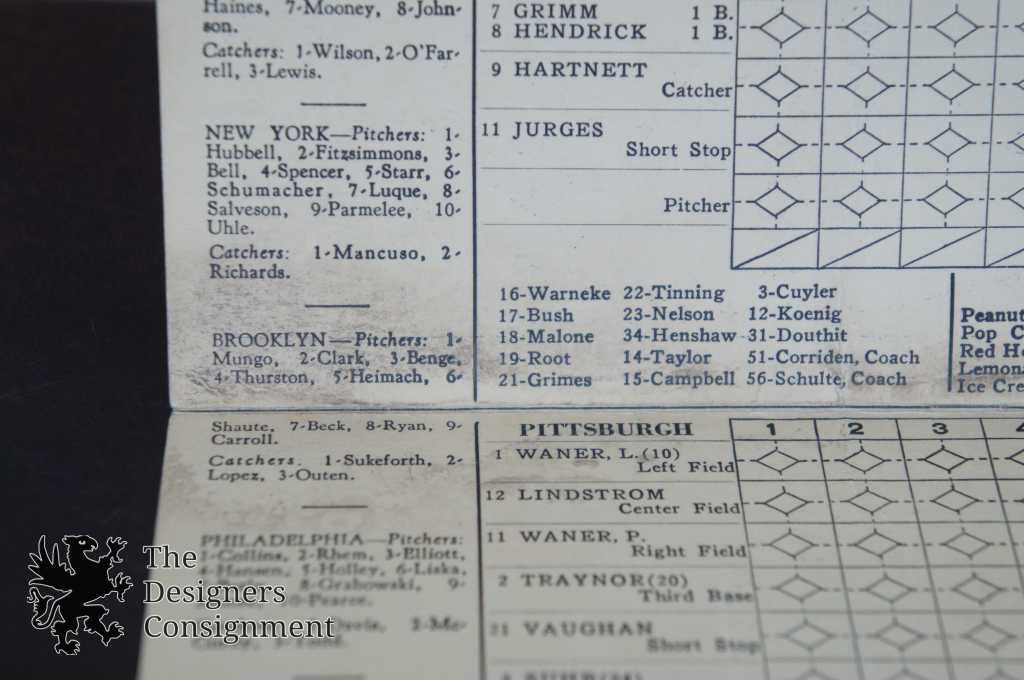 Haines, 7-Mooney, 8-John-
son.
Catchers: 1-Wilson, 2-O'Far-
rell, 3-Lewis.
NEW YORK—Pitchers: 1-
Hubbell, 2-Fitzsimmons, 3-
Bell, 4-Spencer, 5-Starr, 6-
Schumacher, 7-Luque, 8-
Salveson, 9-Parmelee, 10-
Uhle.
Catchers: 1-Mancuso, 2-
Richards.
BROOKLYN—Pitchers: 1-
Mungo, 2-Clark, 3-Benge,
4-Thurston, 5-Heimach, 6-
Shaute, 7-Beck, 8-Ryan, 9-
Carroll.
Catchers. 1-Sukeforth, 2-
Lopez, 3-Outen.
PHILADELPHIA—Pitchers:
1-Collins, 2-Rhem, 3-Elliott,
4-Hansen, 5-Holley, 6-Liska,
8-Grabowski, 9-
10-Pearce.
7 GRIMM 1 B.
8 HENDRICK 1 B.
9 HARTNETT
Catcher
11 JURGES
Short Stop
Pitcher
16-Warneke 22-Tinning 3-Cuyler
17-Bush 23-Nelson 12-Koenig
18-Malone 34-Henshaw 31-Douthit
19-Root 14-Taylor 51-Corriden, Coach
21-Grimes 15-Campbell 56-Schulte, Coach
Peanut
Pop C
Red Ho
Lemona
Ice Cre
PITTSBURGH 1 2 3 4
1 WANER, L. (10)
Left Field
12 LINDSTROM
Center Field
11 WANER, P.
Right Field
2 TRAYNOR (20)
Third Base
21 VAUGHAN
Short Stop
The
Designers
Consignment